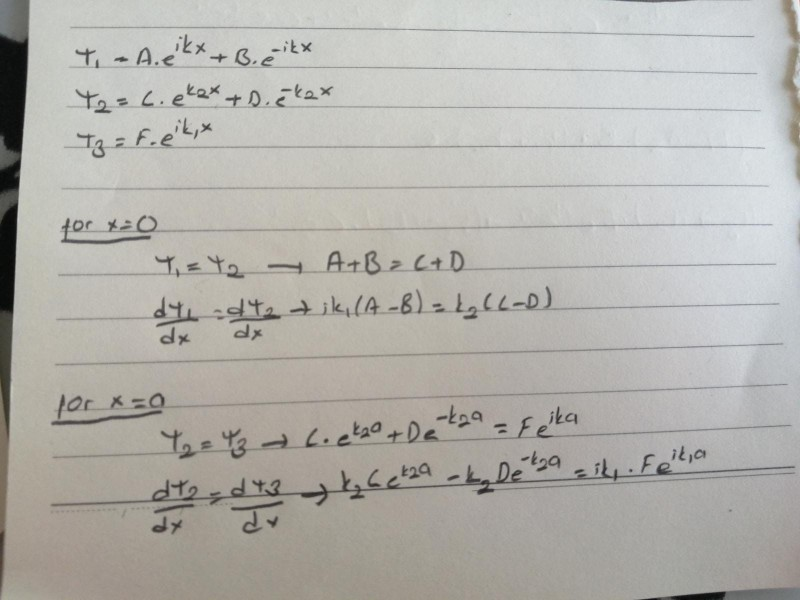 Ψ₁ = A.e^{ikx} + B.e^{-ikx}
Ψ₂ = C.e^{k₂x} + D.e^{-k₂x}
Ψ₃ = F.e^{ik₁x}
for x=0
Ψ₁ = Ψ₂ → A+B = C+D
dΨ₁/dx = dΨ₂/dx → ik₁(A-B) = k₂(C-D)
for x=a
Ψ₂ = Ψ₃ → C.e^{k₂a} + De^{-k₂a} = Fe^{ika}
dΨ₂/dx = dΨ₃/dx → k₂Ce^{k₂a} - k₂De^{-k₂a} = ik₁.Fe^{ik₁a}